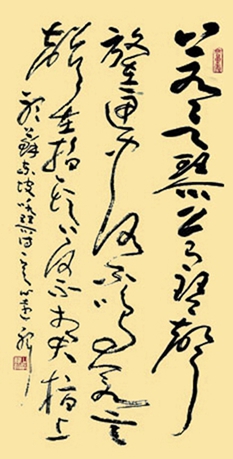 若言琴上有琴聲
放在匣中何不鳴若言
聲在指头上何不於君指上
听蘇東坡琴詩